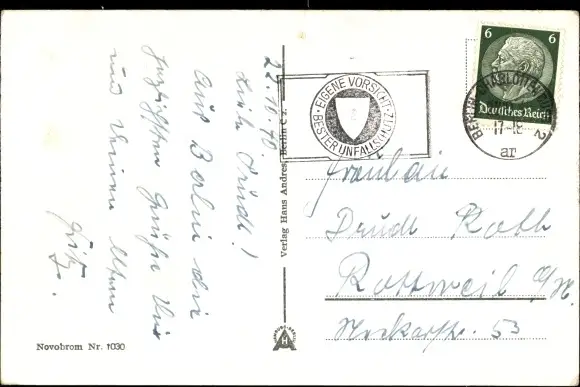 22.11.40
Liebe Trudl!
Aus Berlin die
herzlichsten Grüße Dir
und Deinen Eltern
Fritz.
Novobrom Nr. 1030
Verlag Hans Andres, Berlin C 2.
EIGENE VORSICHT
BESTER UNFALLSCHUTZ
6 6
Deutsches Reich
BERLIN-CHARLOTTENBURG 2
17-18
ar
Fräulein
Trudl
Rottweil a/N.
Neckarstr. 53